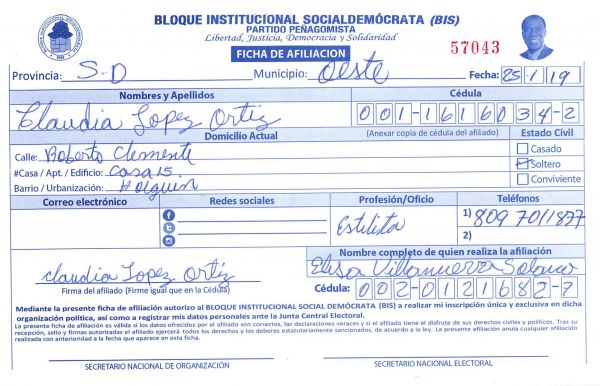 BLOQUE INSTITUCIONAL SOCIALDEMÓCRATA (BIS)
PARTIDO PEÑAGOMISTA
Libertad, Justicia, Democracia y Solidaridad
FICHA DE AFILIACION
57043
Provincia: S-D Municipio: Oeste Fecha: 25/1/19
Nombres y Apellidos Cédula
Claudia Lopez Ortiz 001-1616034-2
Domicilio Actual (Anexar copia de cédula del afiliado) Estado Civil
Calle: Roberto Clemente Casado
#Casa / Apt. / Edificio: Casa 15 Soltero
Barrio / Urbanización: Holguin Conviviente
Correo electrónico Redes sociales Profesión/Oficio Teléfonos
Estilista 1) 809 7011877
2)
Nombre completo de quien realiza la afiliación
Claudia Lopez Ortiz Elisa Villanueva
Firma del afiliado (Firme igual que en la Cédula) Cédula: 002-0121682-7
Mediante la presente ficha de afiliación autorizo al BLOQUE INSTITUCIONAL SOCIAL DEMÓCRATA (BIS) a realizar mi inscripción única y exclusiva en dicha
organización política, así como a registrar mis datos personales ante la Junta Central Electoral.
La presente ficha de afiliación es válida si los datos ofrecidos por el afiliado son correctos, las declaraciones veraces y si el afiliado tiene el disfrute de sus derechos civiles y políticos. Tras su
recepción, sello y firmas autorizadas el afiliado ejercerá todos los derechos y los deberes estatutariamente sancionados, de acuerdo a la ley. La presente afiliación anula cualquier afiliación
realizada con anterioridad a la fecha que aparece en esta ficha.
SECRETARIO NACIONAL DE ORGANIZACIÓN SECRETARIO NACIONAL ELECTORAL